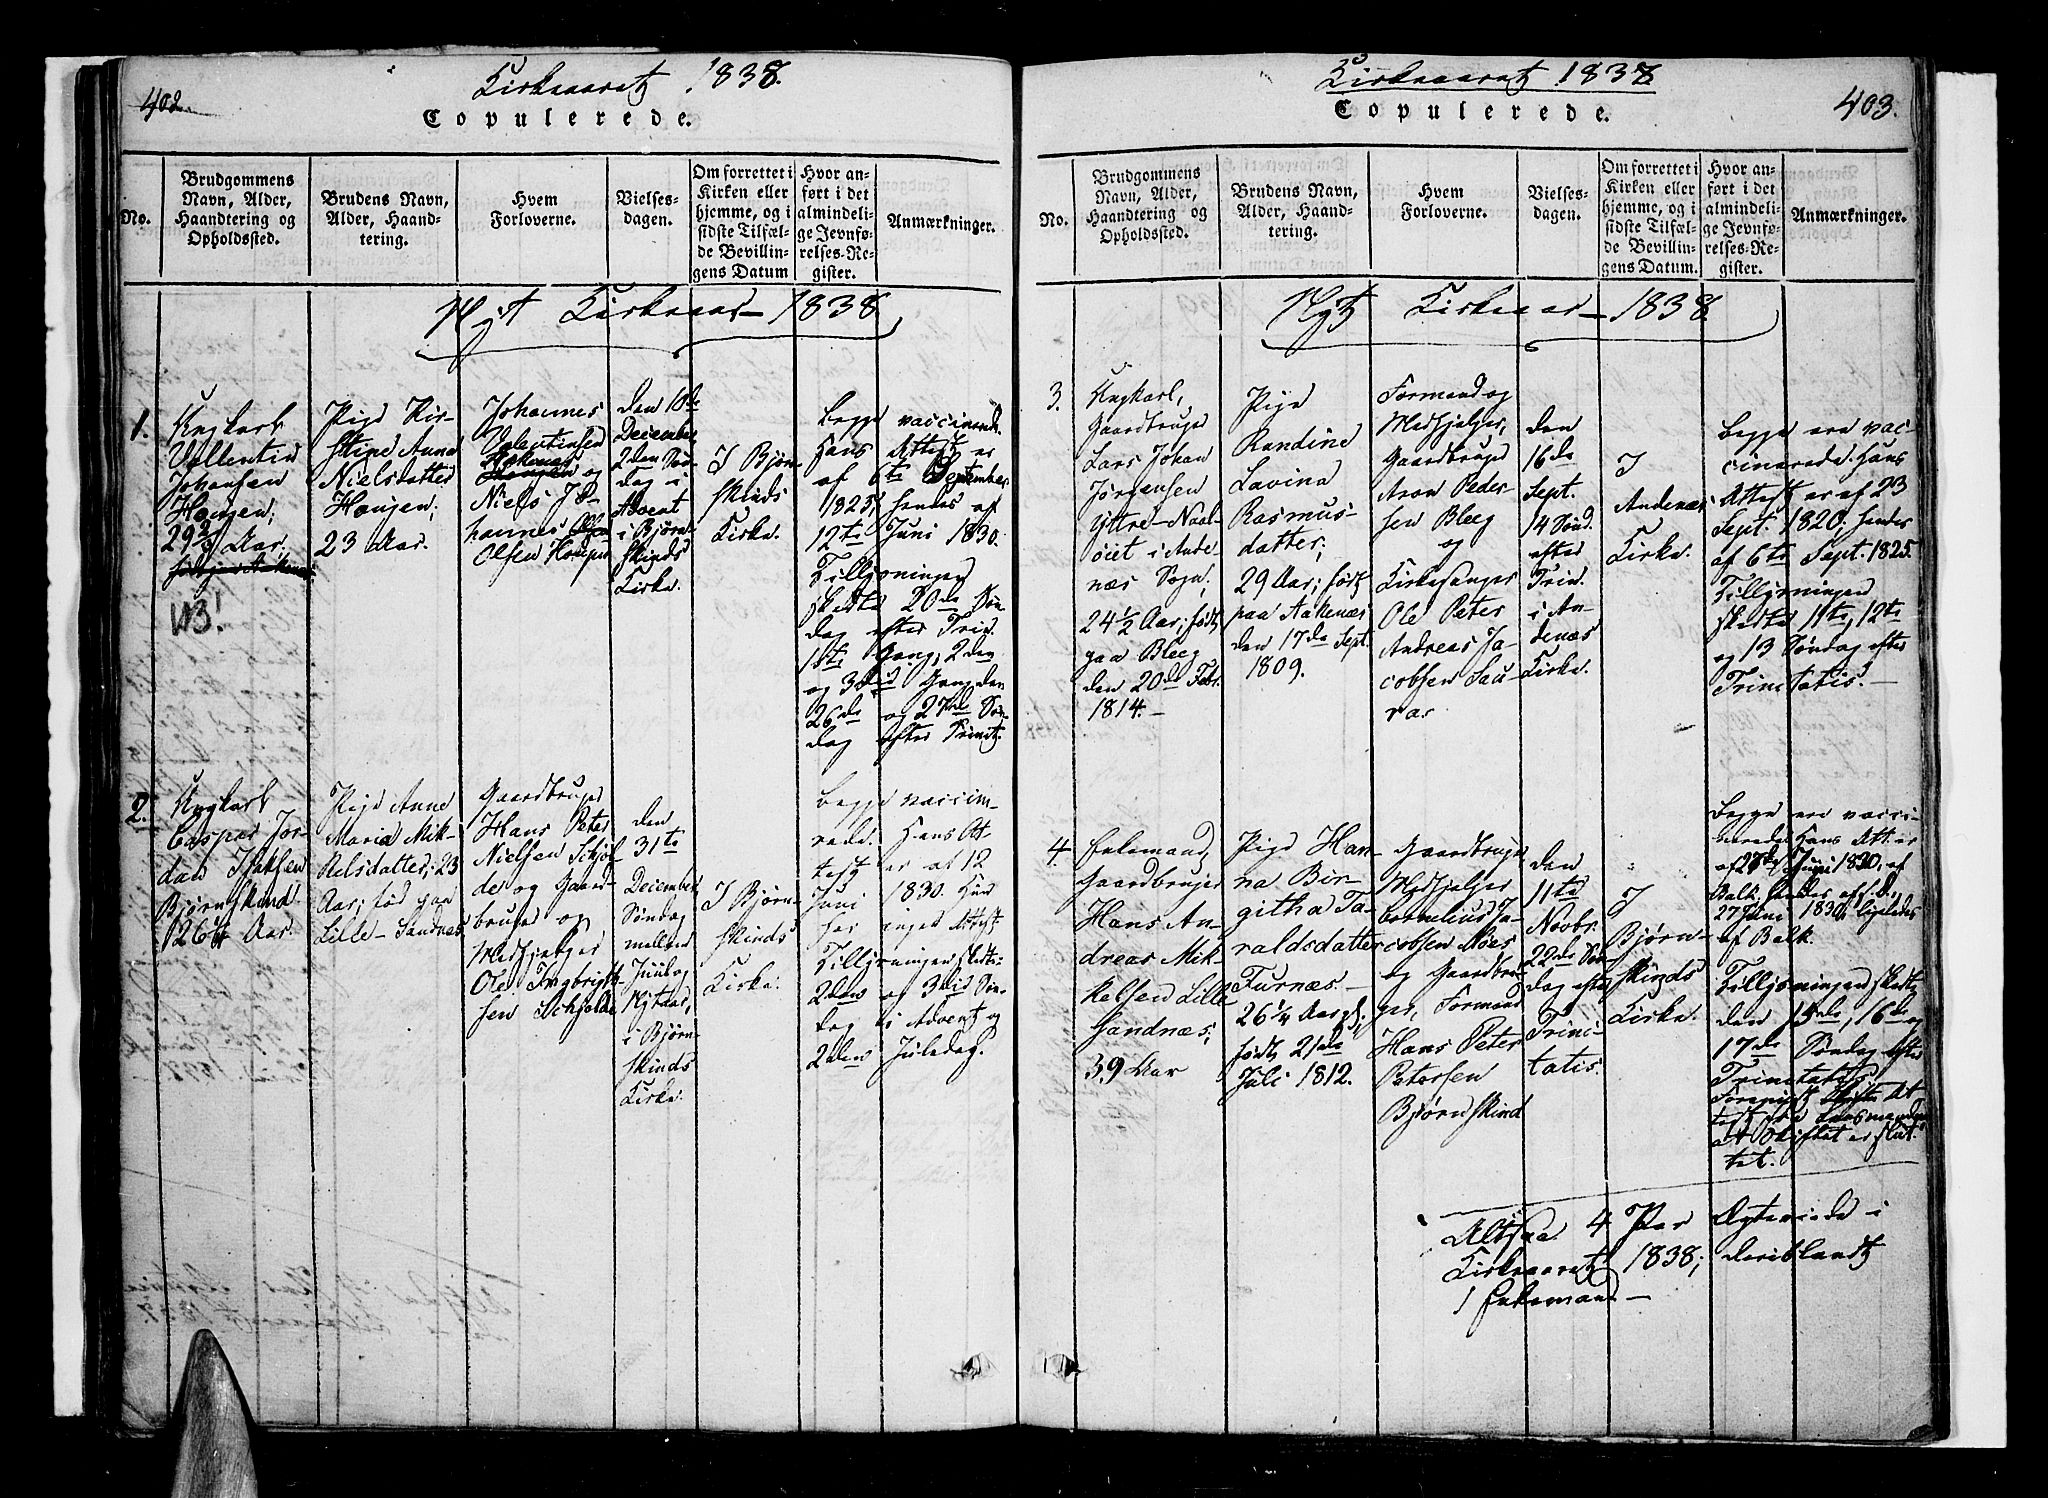 402
Kirkeaaret 1838.
Copulerede.
No.
Brudgommens
Navn, Alder,
Haandtering og
Opholdssted.
Brudens Navn,
Alder, Haand-
tering.
Hvem
Forloverne.
Vielses-
dagen.
Om forrettet i
Kirken eller
hjemme, og i
sidste Tilfæl-
de Bevillin-
gens Datum
Hvor an-
ført i det
almindeli-
ge Jevnfø-
relses-Re-
gister.
Anmærkninger.
Nyt Kirkeaar 1838
1.
Ungkarl
Vallentin
Johansen
29 3/4 Aar,
NB!
Pige Kir-
stine Anne
Nielsdatter
23 Aar.
Johannes
Valentinsen
og
Niels Jo-
hannes
Olsen
Den 10de
December
2den Søn-
dag i
Advent
i Bjørn-
skinds
Kirke.
I Bjørn-
skinds
Kirke.
Begge vaccinerede.
Hans Attest er
af 6te September
1825; hendes af
12te Juni 1830.
Tillysningen
skedte 20de Søn-
dag efter Trin.
1ste Gang, 2den
og 3die Gang den
26de og 27de Søn-
dag efter Trinit.
2.
Ungkarl
Caspar Jor-
dan Isaksen
Bjørnskind
26 Aar.
Pige Anne
Maria Mik-
kelsdatter; 23
Aar; fød paa
Lille-Sandnæs
Gaardbruger
Hans Peter
Nielsen Schjol-
de og Gaard-
bruger og
Medhjelper
Ole Ingbrigt-
sen Schjolde
Den
31te
December
Søndag
mellem
Juul og
Nytaar,
i Bjørn-
skinds
Kirke.
I Bjørn-
skinds
Kirke.
Begge vaccine-
rede. Hans At-
test er af 12
Juni 1830. Hun
har ingen Attest.
Tillysningen skedte
2den og 3die Søn-
dag i Advent og
2den Juledag.
Kirkeaaret 1838
403.
Copulerede.
No.
Brudgommens
Navn, Alder,
Haandtering og
Opholdssted.
Brudens Navn,
Alder, Haand-
tering.
Hvem
Forloverne.
Vielses-
dagen.
Om forrettet i
Kirken eller
hjemme, og i
sidste Tilfæl-
de Bevillin-
gens Datum.
Hvor an-
ført i det
almindeli-
ge Jevnfø-
relses-Re-
gister.
Anmærkninger.
Nyt Kirkeaar 1838.
3.
Ungkarl,
Gaardbruger
Lars Johan
Jørgensen
Yttre-
i Ande-
næs Sogn;
24 1/2 Aar; født
paa Bleeg
den 20de Febr.
1814.-
Pige
Randine
Lavina
Rasmus-
datter;
29 Aar; født
paa Aakenæs
den 17de Sept.
1809.
Formand og
Medhjelper,
Gaardbruger
Aron Peder-
sen Bleeg
og
Kirkesanger
Ole Peter
Andreas Ja-
cobsen Sau-
ra.
Den
16de
Sept.
14 Sønd.
efter
Trin.
i An-
denæs
Kirke.
I
Andenæs
Kirke.
Begge ere vac-
cinerede. Hans
Attest er af 23
Sept. 1820; hendes
af 6te Sept. 1825.
Tillysningen
skedte 11te, 12te
og 13 Søndag efter
Trinitatis.-
4
Enkemand,
Gaardbruger
Hans An-
dreas Mik-
kelsen Lille
Sandnæs;
39 Aar
Pige Han-
na Bir-
githa Ta-
raldsdatter
Furnæs-
26 1/4 Aar gl.
født 21de
Juli 1812.
Gaardbruger
Medhjelper
Cornelius Ja-
cobsen Nøes
og Gaardbru-
ger, Formand
Hans Peter
Petersen
Bjørnskind
Den
11te
Novbr.
22de Søn-
dag efter
Trini-
tatis.
I
Bjørn-
skinds
Kirke.
Begge ere vacci-
nerede. Hans Att. er
af Juni 1820, af
Balk, hendes af s. D.
27 Juni 1830 ligeledes
af Balk.
Tillysningen skedte
den 15de, 16de og
17de Søndag efter
Trinitatis.
Forevist At-
test fra Lensmanden
at Skiftet er slut-
tet.
Altsaa 4 Par Ægteviede i
Kirkeaaret 1838; deriblandt
1 Enkemand-